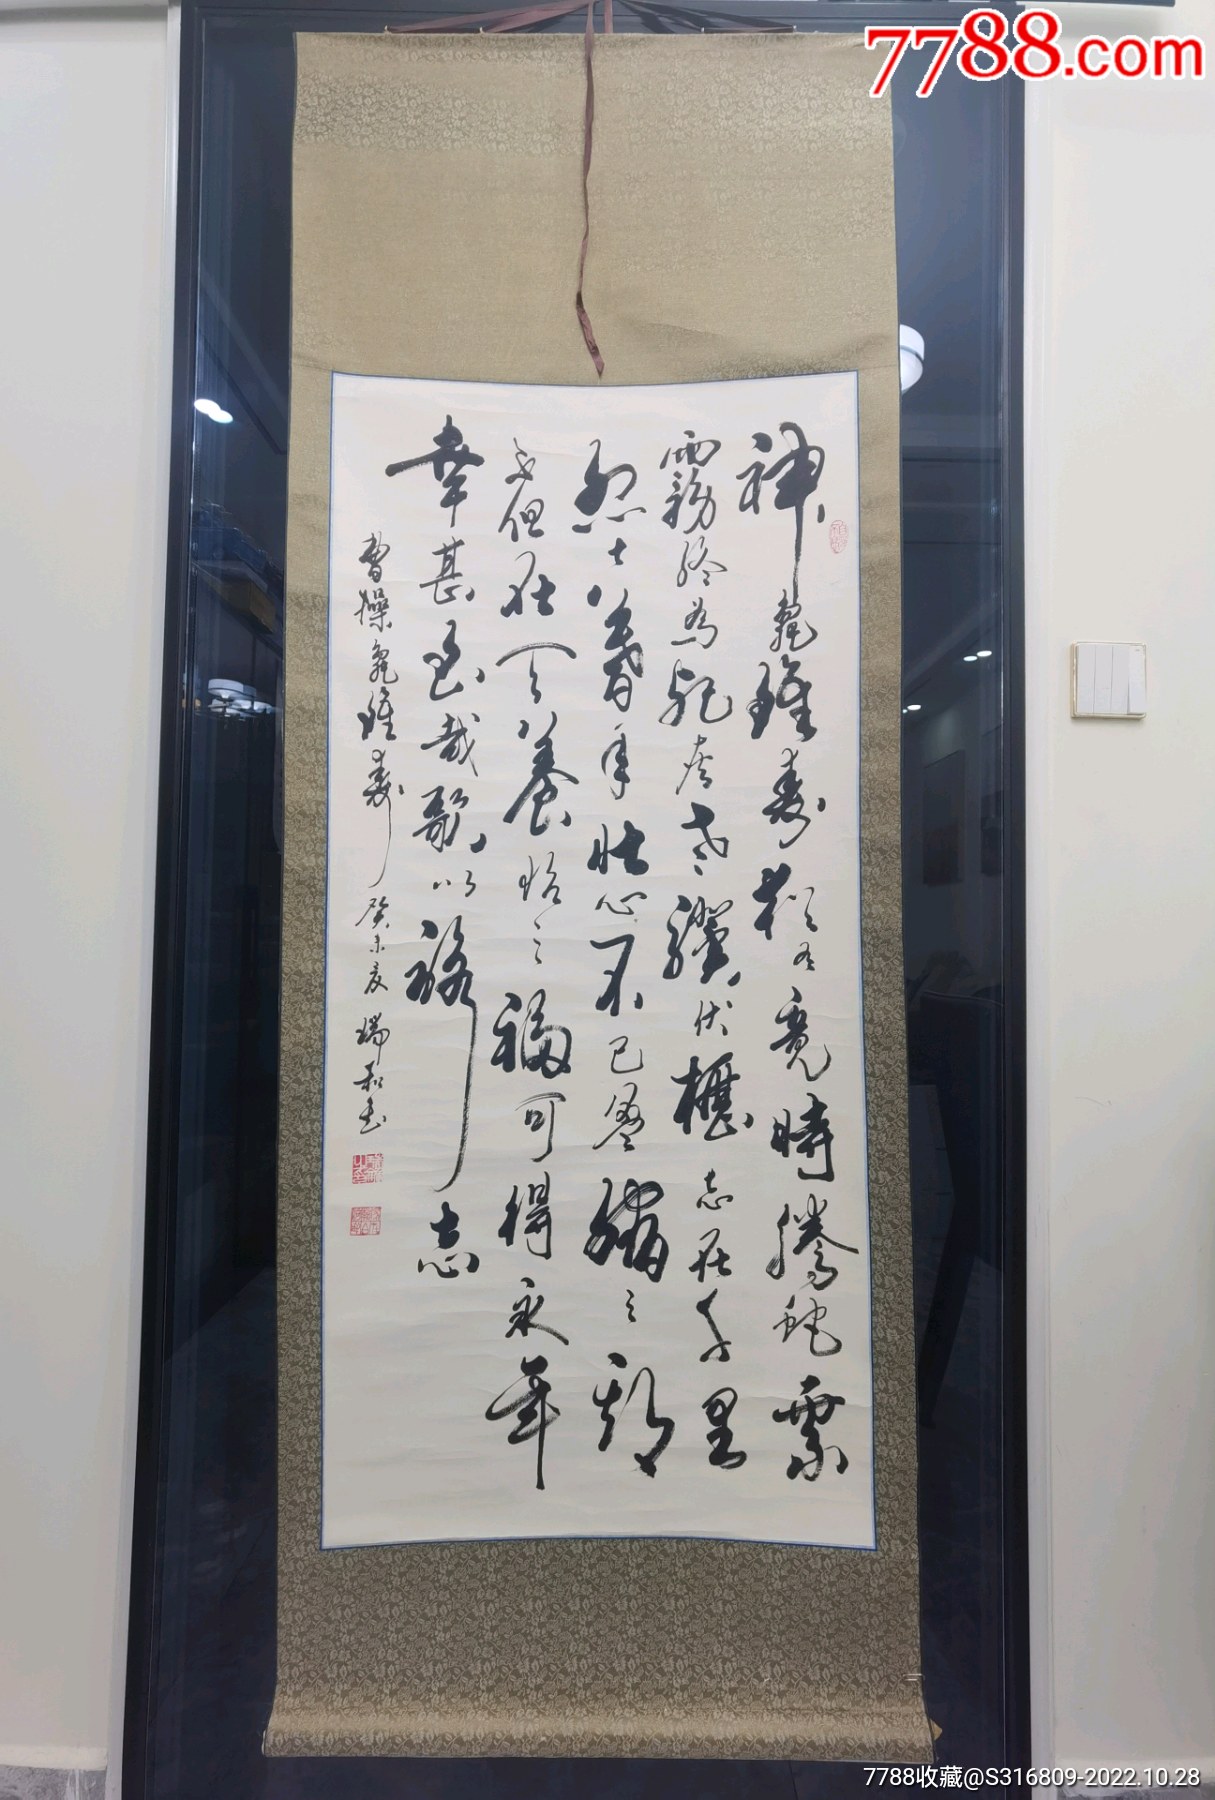 7788.com
神龜雖壽猶有竟時騰蛇乘
霧終為灰老驥伏櫪志在千里
烈士暮年壯心不已盈縮之期
不但在天養怡之福可得永年
幸甚至哉歌以詠志
曹操龜雖壽 癸未夏 瑞和書
7788收藏@S316809-2022.10.28